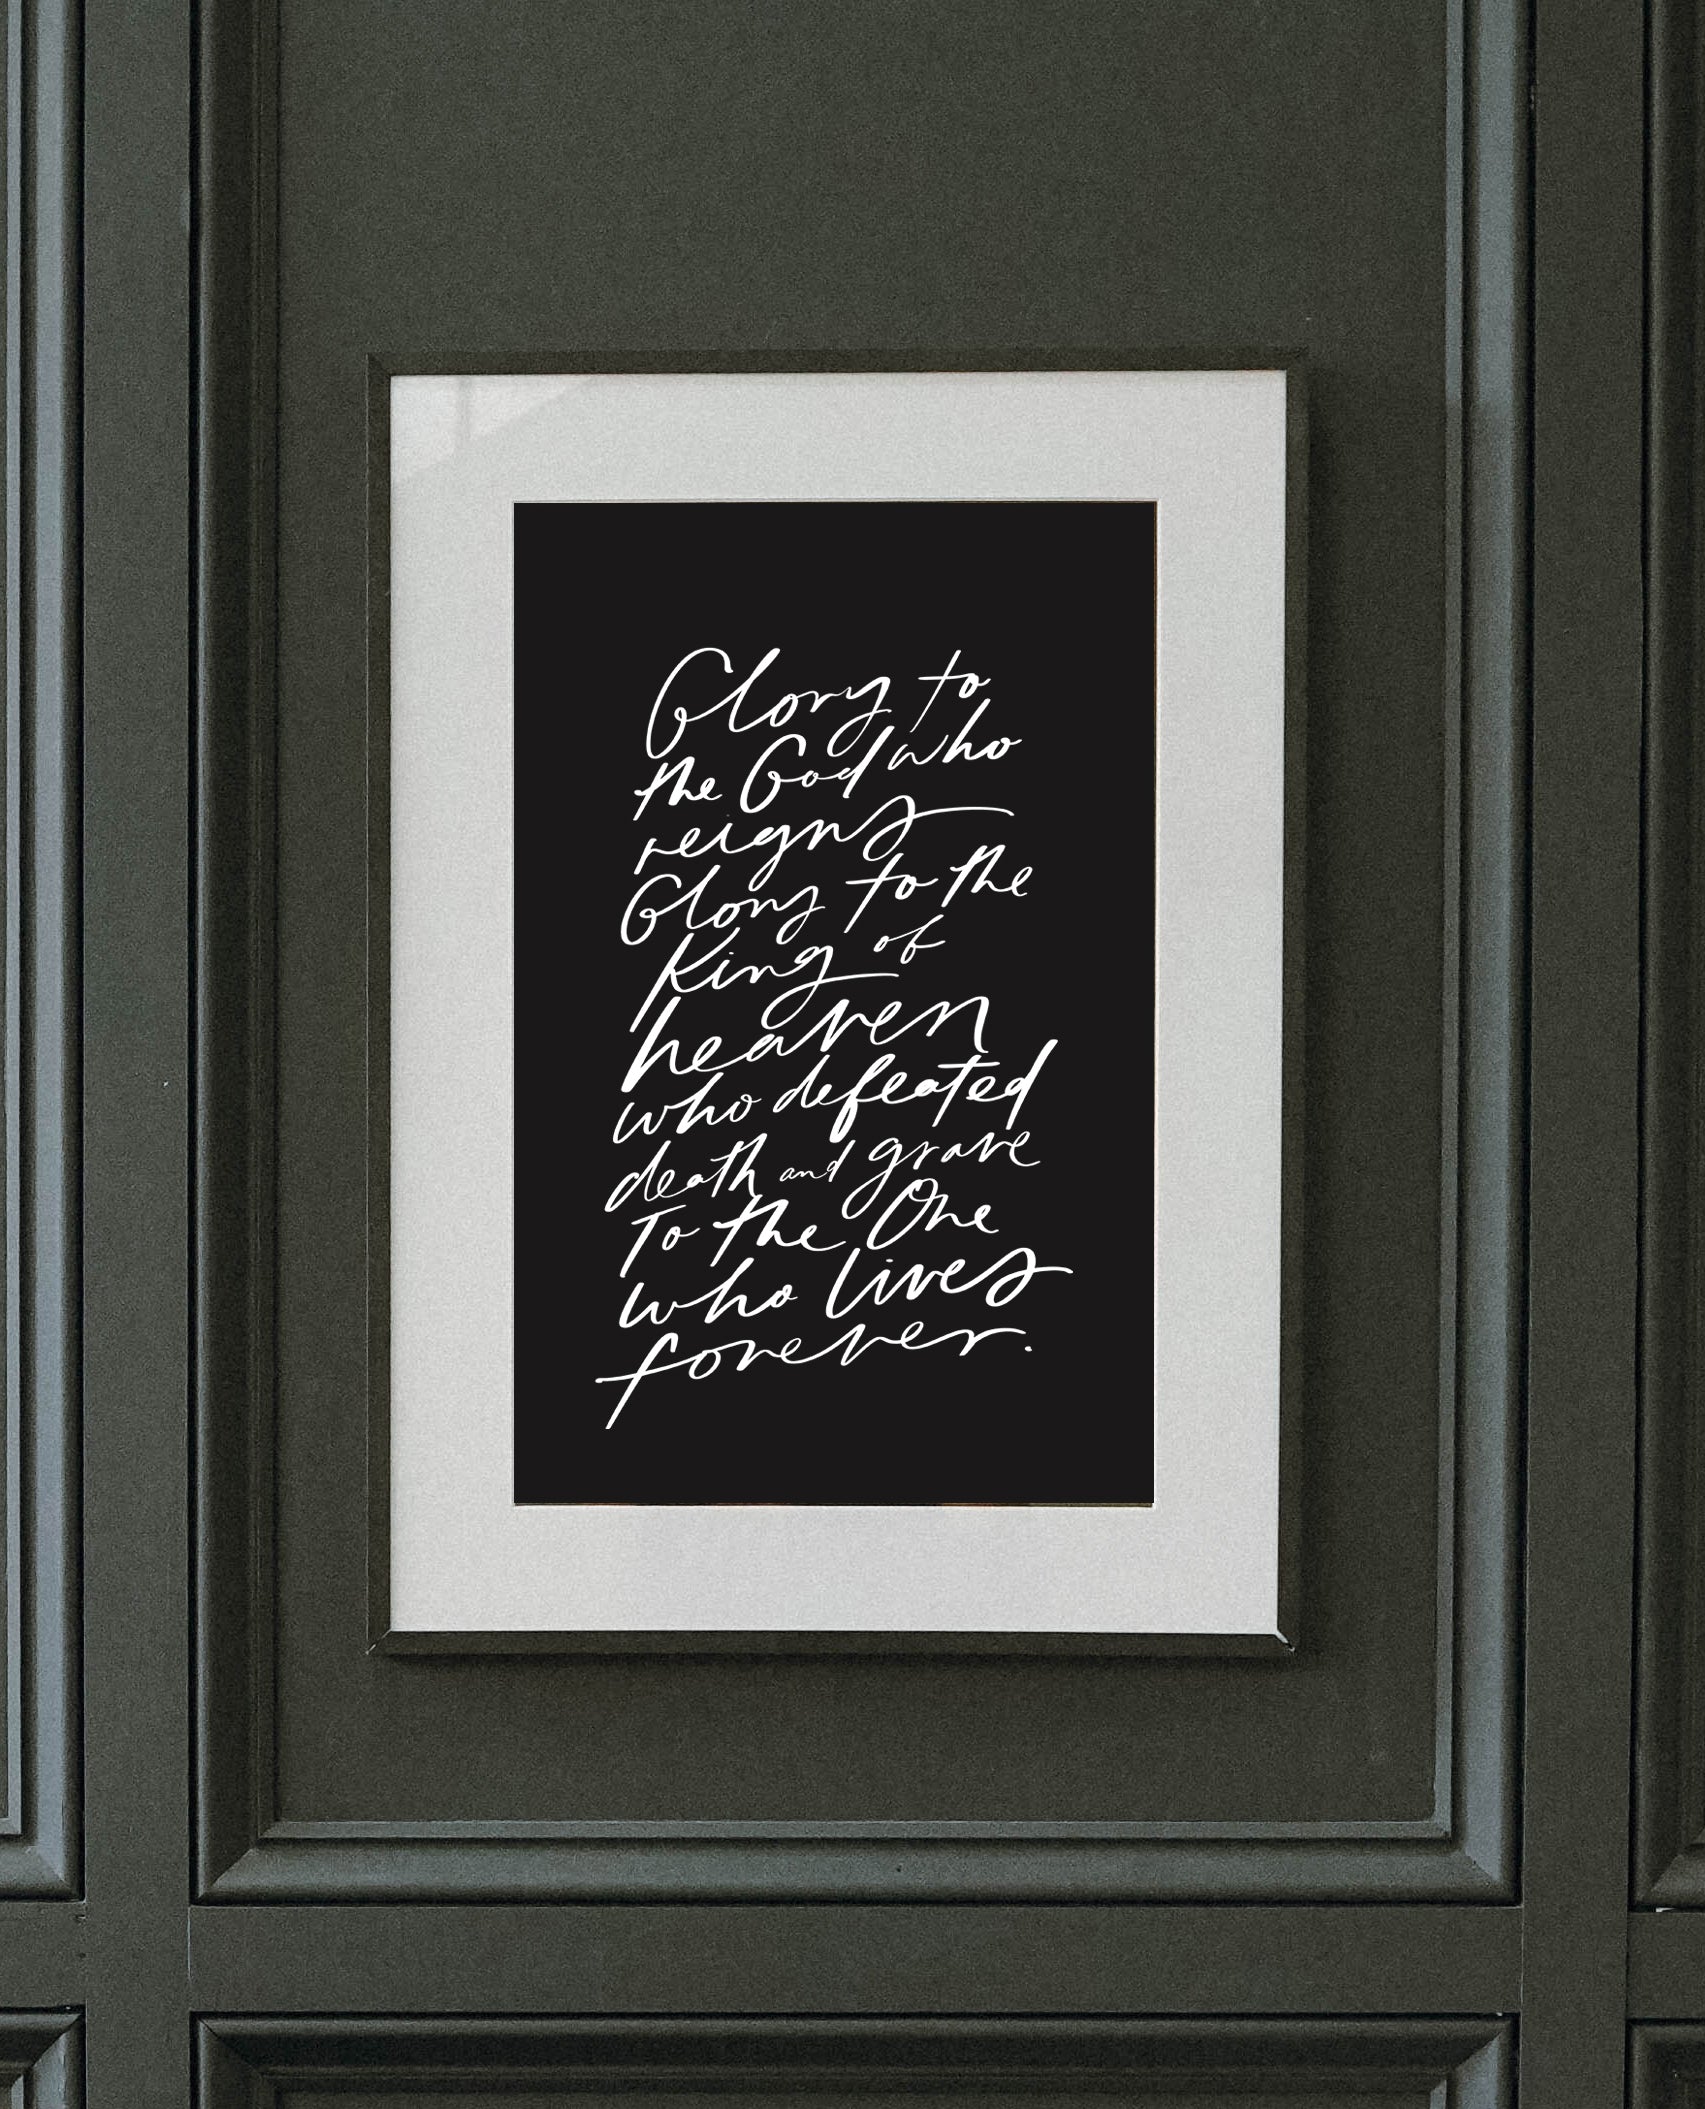 Glory to
the God who
reigns
Glory to the
King of
heaven
who defeated
death and grave
To the One
who lives
forever.